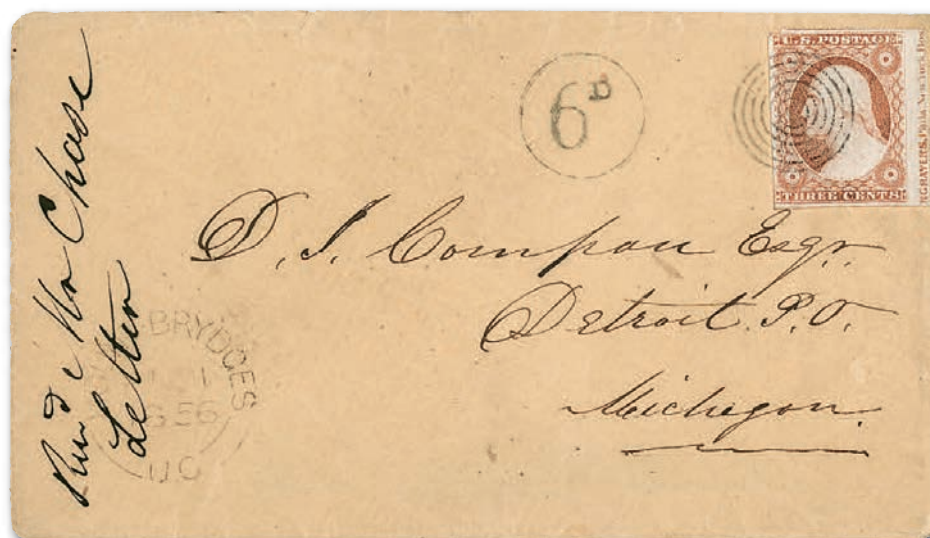 Recd Mr Chase
Letter
6D
U.S. POSTAGE
THREE CENTS
D. J. Compau Esqr.
Detroit P.O.
Michegan
BRYDGES
56
U.C